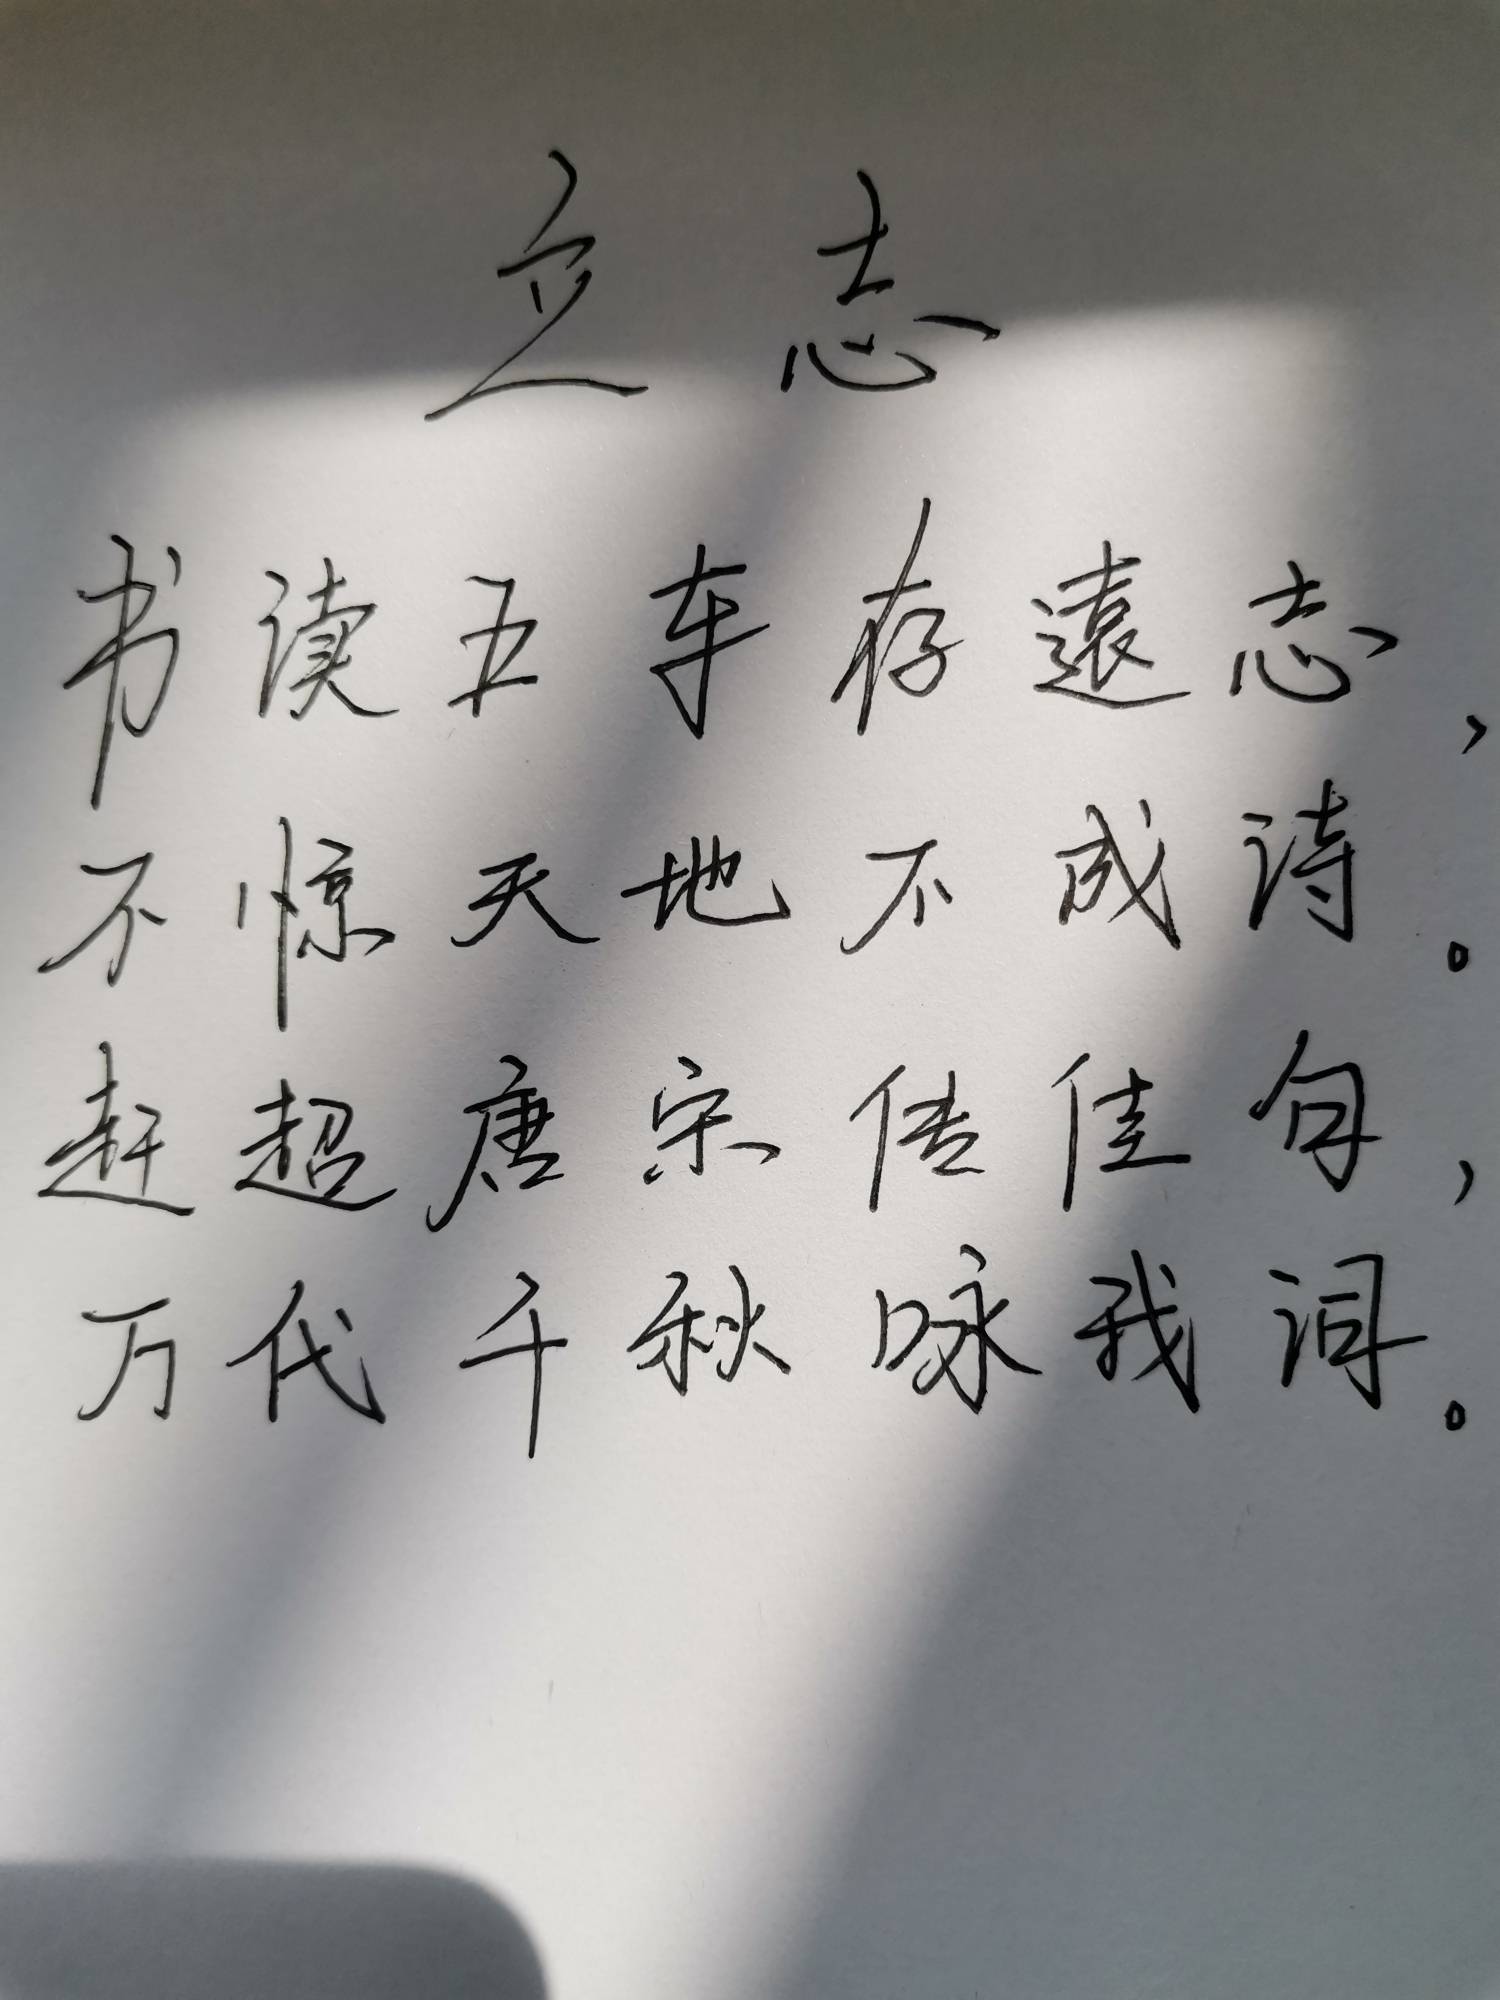 立志
书读五车存遠志,
不惊天地不成诗。
赶超唐宋传佳句,
万代千秋咏我词。